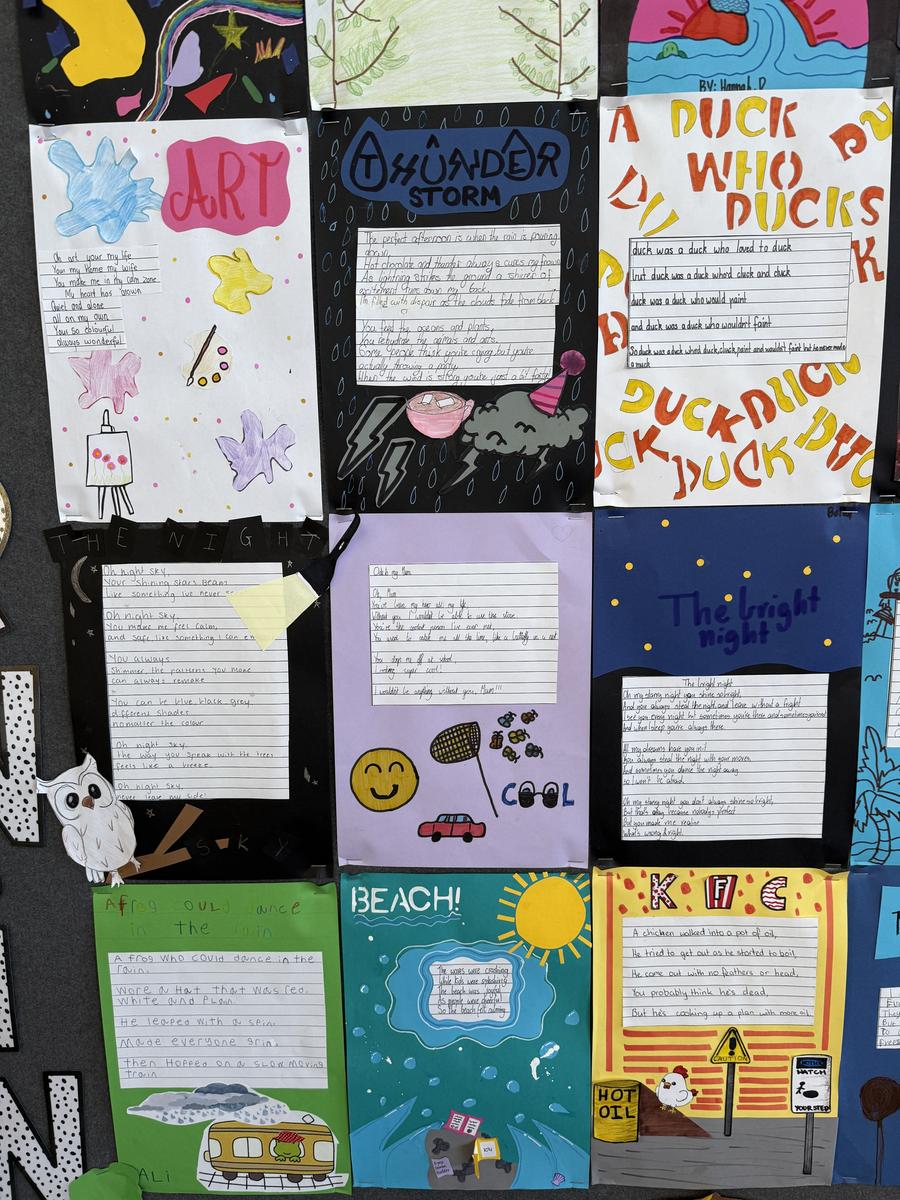 BY: Hannah.D
ART
Oh art your my life
You my home my wife
You make me in my calm zone
My heart has grown
Quiet and alone
all on my own
Your so colourful
always wonderful
THUNDER
STORM
The perfect afternoon is when the rain is pouring
down,
Hot chocolate and thunder always cures my frowns
As lightning strikes the ground a shiver of
excitement runs down my back.
I'm filled with dispair as the clouds fade from back
You feed the oceans and plants,
You rehydrate the animals and ants.
Some people think you're crying but you're
actually throwing a party
When the wind is strong you're just a bit farty
A DUCK
WHO
DUCKS
duck was a duck who loved to duck
but duck was a duck who'd cluck and duck
duck was a duck who would paint
and duck was a duck who wouldn't faint
So duck was a duck who'd duck, cluck, paint and wouldn't faint but he never made
a muck
DUCK DUCK
DUCK
DUCK
THE NIGHT
Oh night sky,
Your shining stars Beam
Like something i've never
Oh night sky,
You make me feel calm,
and safe like something can
You always
Shimmer the patterns you make
can always remake
You can be blue, black, grey
different shades
no matter the colour
Oh night sky
the way you speak with the trees
feels like a breeze
Oh night sky
never leave my side!
SKY
Ode to my Mum
Oh, Mum
You've been my hero all my life
Without you I wouldn't be able to use the
You're the person I've ever met
You seem to make me all the time, like a butterfly in a net
You drop me off at school,
Looking super cool!
I wouldn't be anything without you, Mum!!!
COOL
The bright
night
The bright night
Oh my starry night you shine so bright,
And you always steal the night and leave without a fright
I see you every night but sometimes you're there and sometimes you're not
and when I sleep you're always there.
All my dreams have you in it
You always steal the night with your moves
And sometimes you dance the night away
so I won't be afraid.
Oh my starry night you don't always shine so bright,
But that's okay because nobody's perfect
But you made me realise
what's wrong & right.
A frog could dance
in the rain
A frog who could dance in the
rain.
Wore a Hat that was red,
White and Plain.
He leaped with a spin.
Made everyone grin.
then Hopped on a slow moving
train
ALi
BEACH!
The waves were crashing
While kids were splashing
The beach was joyful
As people were cheerful
So the beach felt calming
KFC
A chicken walked into a pot of oil,
He tried to get out as he started to boil,
He came out with no feathers or head,
You probably think he's dead,
But he's cooking up a plan with more oil.
CAUTION
HOT
OIL
WATCH
YOUR STEP!
N
N